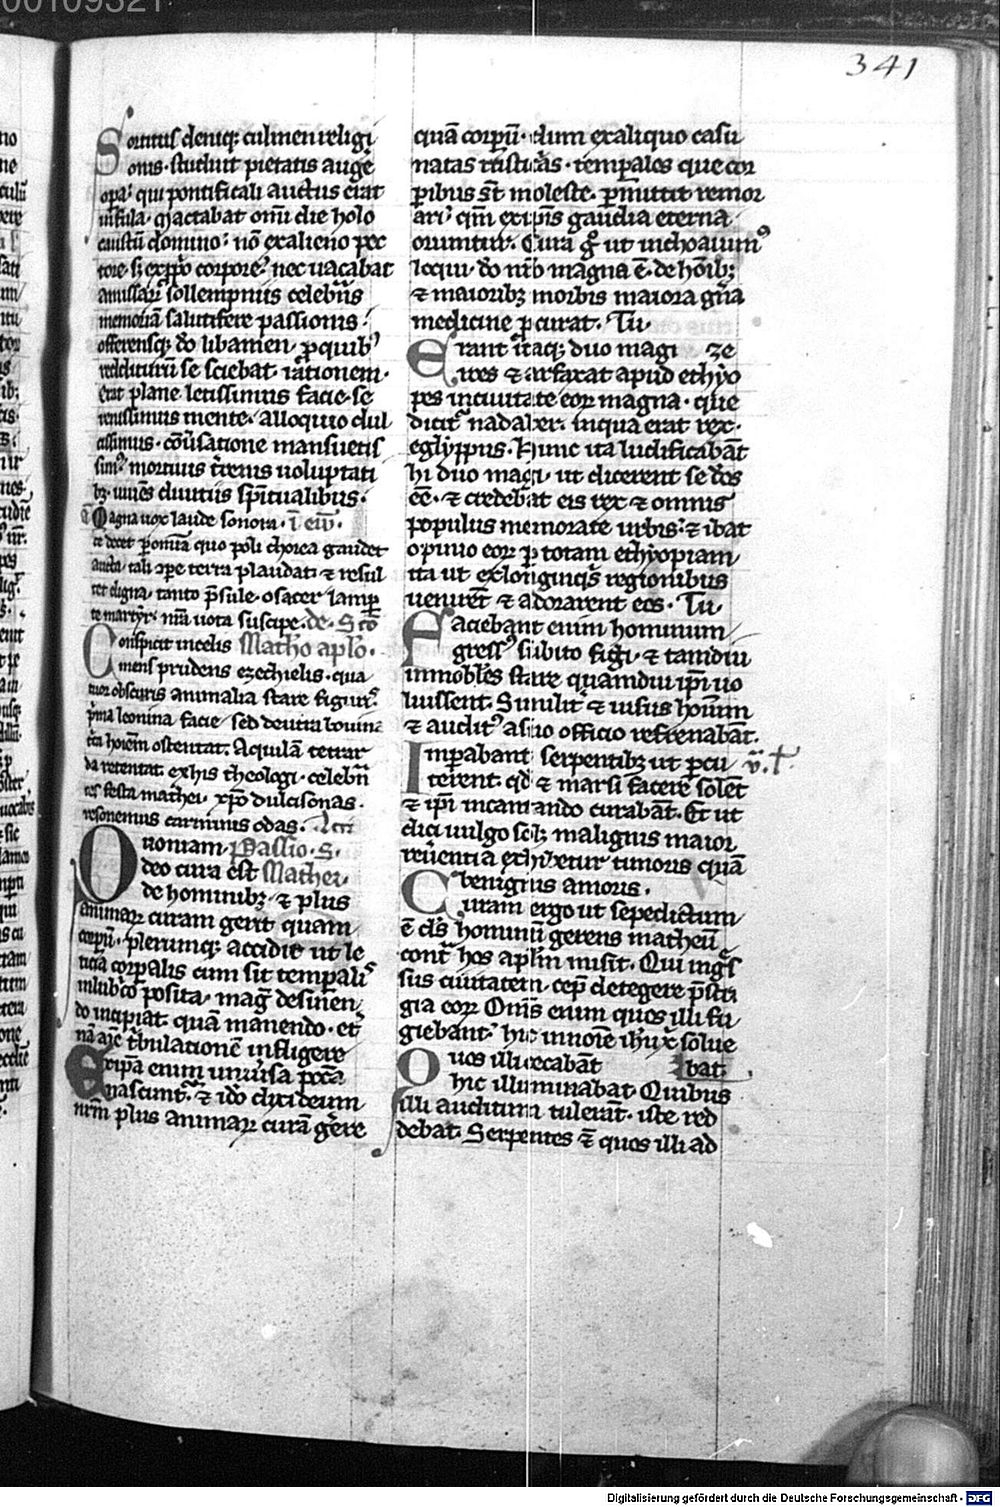 00109321
341
Sortitus deniq; culmen religi
onis· studuit pietatis auge
opa· qui pontificali auctus erat
infula· mactabat omi die holo
caustū domino· nō ex alieno pec
tore· sꝫ ex pp̄o corpore· nec uacabat
missaꝝ sollempniis celebris
memoriā salutifere passionis·
offerensq; dō libamen p quib᷒
redditurū se sciebat rationem·
erat plane letissimus facie· se
renissimus mente· alloquio dul
cissimus· cōuersatione mansuetis
sim᷒ mortuus t̄renis uoluptati
bꝫ· uiuēs diuitiis spiritualibus·
Magna uox laude sonora· ī eū·
te decet p omnia quo poli chorea gaudet
aucta· tali ope terra plaudat· ⁊ resul
tet digna· tanto p̄sule· o sacer lamp
te martyr· nr̄a uota suscipe· de· Scō
Conspicit in celis Matho aplo·
mens prudens ezechielis· qua
tuor obscuris animalia stare figur᷒·
p̄ma leonina facie sed deuicta bouina
t̄cia hoiem ostentat· Aquilā tetrar
da retentat ex his theologi· celebrī
tes festa mathei· xp̄o dulcisonas·
resonemus carminis odas·
Quoniam Passio· S·
deo cura est Mathei·
de hominibꝫ· ⁊ plus
animaꝝ curam gerit quam
corpū· plerumq; accidit ut le
ticia corpalis cum sit tempalis
in lubco posita· mag desinen
do incipiat quā manendo· et
nā aīe tbulationē infligere
Ex ipsa enim uniuersa pcca
nascunt· ⁊ ido dixi deum
nrm plus animaꝝ curā gere
quā corpū· dum ex aliquo casu
natas tempales que cor
pibus st moleste· pmittit remor
ari· qm ex ipīs gaudia eterna
oriuntur· Cura g ut inchoauim᷒
loqui· dō nrīb magna ē· de hōibꝫ
⁊ maioribꝫ morbis maiora gna
medicine pcurat· Tu·
Erant itaqꝫ duo magi ze
roes ⁊ arfaxat apud ethyo
pes in ciuitate eoꝝ magna· que
dicit nadauer· in qua erat rex·
eglyppus· Hunc ita ludificabāt
hi duo magi· ut dicerent se dos
ēē· ⁊ credebat eis rex ⁊ omnis
populus memorate urbis· ⁊ ibat
opinio eoꝝ p totam ethyopiam
ita ut ex longinqis regionibus
uenirēt ⁊ adorarent eos· Tu·
Faciebant enim hominum
gress᷒ subito figi· ⁊ tamdiu
inmobiles stare quamdiu ipi uo
luissent· Similit ⁊ uisus hoium
⁊ audit᷒ a suo officio refrenabāt·
Impabant serpentibꝫ ut pcu
terent· qd ⁊ marsi facere solēt
⁊ ipi incantando curabāt· Et ut
dici uulgo solꝫ malignis maior
reuentia exhibetur timoris quā
benignis amoris·
Curam ergo ut sepedictum
ē ds hominū gerens matheū
cont hos aplm misit· Qui ings
sus ciuitatem· cep detegere psti
gia eoꝝ Omīs enim quos illi fi
giebant· hic in noīe ihu x solue
Quos illi cecabāt bat
hic illuminabat Quibus
illi auditum tulerat· iste red
debat· Serpentes ⁊ quos illi ad
Digitalisierung gefördert durch die Deutsche Forschungsgemeinschaft - DFG